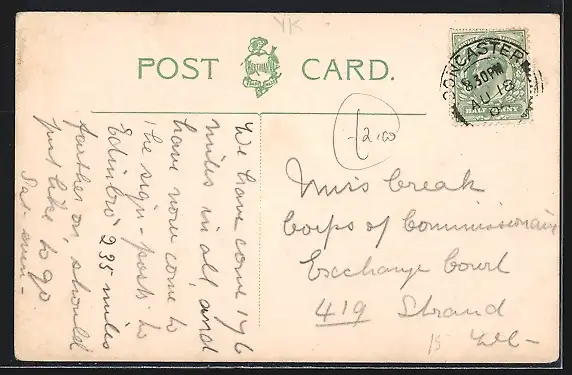 YK
POST CARD.
DONCASTER
8.30PM
AU 18
HALFPENNY
£2.00
We have come 176
miles in all, and
have now come to
the sign-posts to
Edinbro' 235 miles
farther on, should
just like to go
Sat. even-
Miss Creak
Corps of Commissionaire
Exchange Court
419 Strand